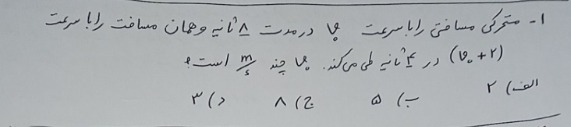 ۱- متحرکی مسافتی را با سرعت V₀ در مدت ۸ ثانیه و همان مسافت را با سرعت
(V₀+۲) در ۴ ثانیه طی می‌کند. V₀ چند m/s است؟
الف) ۲ ب) ۵ ج) ۸ د) ۳